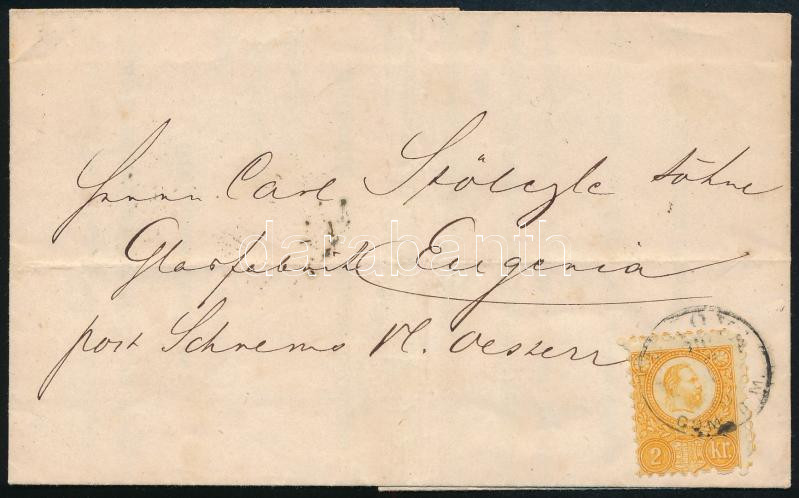 Herrn Carl Stölzle Söhne
Glasfabrik Eugenia
post Schrems N. Oesterr
darabanth
2 Kr.
COM.